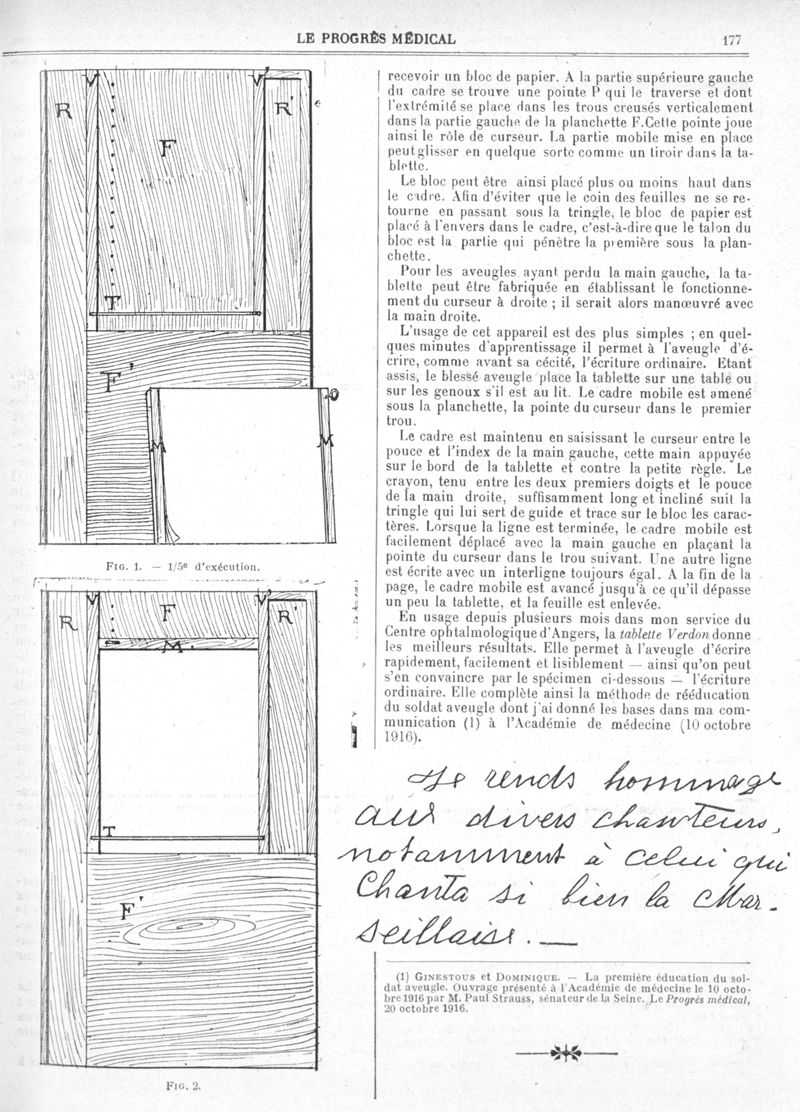 LE PROGRÈS MÉDICAL
177
V
V'
R
F
R'
T
F'
M
M
FIG. 1. — 1/5e d'exécution.
V
F
V'
R
R'
M.
T
F'
FIG. 2.
recevoir un bloc de papier. A la partie supérieure gauche
du cadre se trouve une pointe P qui le traverse et dont
l'extrémité se place dans les trous creusés verticalement
dans la partie gauche de la planchette F. Cette pointe joue
ainsi le rôle de curseur. La partie mobile mise en place
peut glisser en quelque sorte comme un tiroir dans la ta-
blette.
Le bloc peut être ainsi placé plus ou moins haut dans
le cadre. Afin d'éviter que le coin des feuilles ne se re-
tourne en passant sous la tringle, le bloc de papier est
placé à l'envers dans le cadre, c'est-à-dire que le talon du
bloc est la partie qui pénètre la première sous la plan-
chette.
Pour les aveugles ayant perdu la main gauche, la ta-
blette peut être fabriquée en établissant le fonctionne-
ment du curseur à droite ; il serait alors manœuvré avec
la main droite.
L'usage de cet appareil est des plus simples ; en quel-
ques minutes d'apprentissage il permet à l'aveugle d'é-
crire, comme avant sa cécité, l'écriture ordinaire. Etant
assis, le blessé aveugle place la tablette sur une table ou
sur les genoux s'il est au lit. Le cadre mobile est amené
sous la planchette, la pointe du curseur dans le premier
trou.
Le cadre est maintenu en saisissant le curseur entre le
pouce et l'index de la main gauche, cette main appuyée
sur le bord de la tablette et contre la petite règle. Le
crayon, tenu entre les deux premiers doigts et le pouce
de la main droite, suffisamment long et incliné suit la
tringle qui lui sert de guide et trace sur le bloc les carac-
tères. Lorsque la ligne est terminée, le cadre mobile est
facilement déplacé avec la main gauche en plaçant la
pointe du curseur dans le trou suivant. Une autre ligne
est écrite avec un interligne toujours égal. A la fin de la
page, le cadre mobile est avancé jusqu'à ce qu'il dépasse
un peu la tablette, et la feuille est enlevée.
En usage depuis plusieurs mois dans mon service du
Centre ophtalmologique d'Angers, la tablette Verdon donne
les meilleurs résultats. Elle permet à l'aveugle d'écrire
rapidement, facilement et lisiblement — ainsi qu'on peut
s'en convaincre par le spécimen ci-dessous — l'écriture
ordinaire. Elle complète ainsi la méthode de rééducation
du soldat aveugle dont j'ai donné les bases dans ma com-
munication (1) à l'Académie de médecine (10 octobre
1916).
Je rends hommage
aux divers chanteurs,
notamment à celui qui
Chanta si bien la Mar-
seillaise. —
(1) GINESTOUS et DOMINIQUE. — La première éducation du sol-
dat aveugle. Ouvrage présenté à l'Académie de médecine le 10 octo-
bre 1916 par M. Paul Strauss, sénateur de la Seine. Le Progrès médical,
20 octobre 1916.